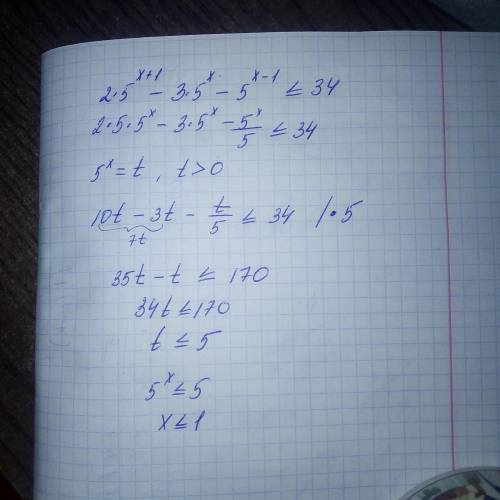 2·5^(x+1) − 3·5^x − 5^(x−1) ≤ 34
2·5·5^x − 3·5^x − 5^x/5 ≤ 34
5^x = t , t > 0
10t − 3t − t/5 ≤ 34 /·5
7t
35t − t ≤ 170
34t ≤ 170
t ≤ 5
5^x ≤ 5
x ≤ 1